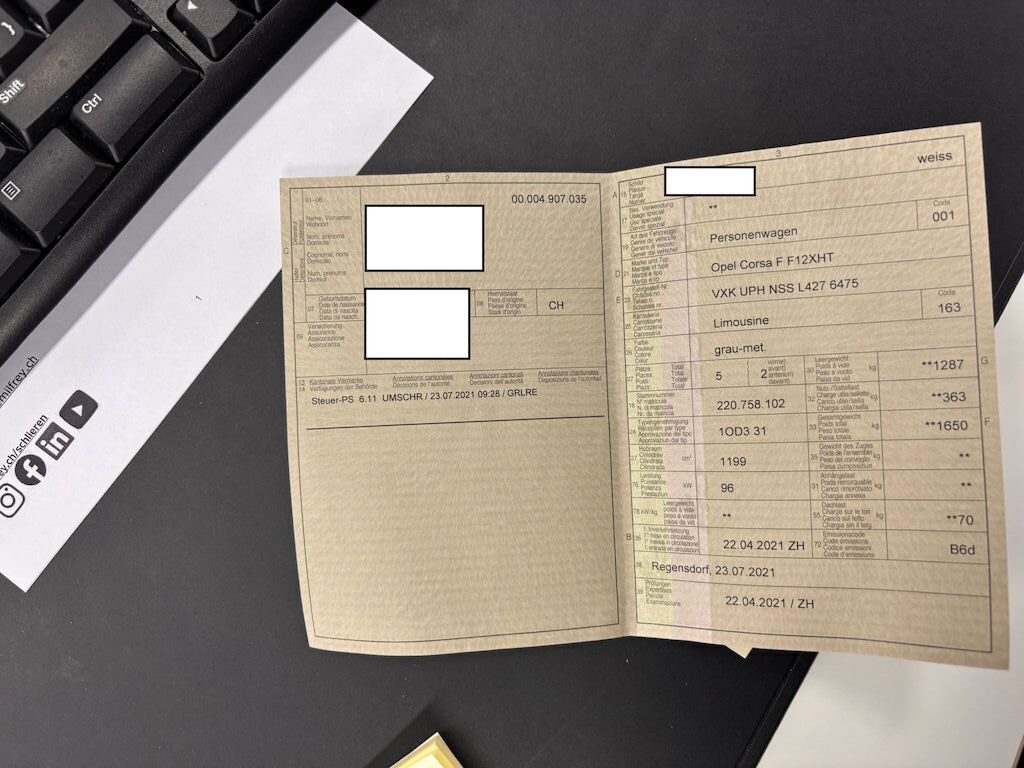 Shift
Ctrl
1
milfrey.ch
frey.ch/schlieren
in
2
01-06
00.004.907.035
C
Name, Vornamen
Wohnort
Nom, prénoms
Domicile
Cognome, nomi
Domicilio
Num, prenums
Domicil
07
Geburtsdatum
Date de naissance
Data di nascita
Data da nasch.
08
Heimatstaat
Pays d'origine
Paese d'origine
Stadi d'origin
CH
09
Versicherung
Assurance
Assicurazione
Assicuranza
13
14
Kantonale Vermerke
Verfügungen der Behörde
Annotations cantonales
Décisions de l'autorité
Annotazioni cantonali
Decisioni dell'autorità
Annotaziuns chantunalas
Disposiziuns da l'autoritad
Steuer-PS 6.11 UMSCHR / 23.07.2021 09:28 / GRLRE
3
A
15
Schild
Plaque
Targa
Numer
weiss
17
Bes. Verwendung
Usage spécial
Uso speciale
Diever spezial
**
19
Art des Fahrzeugs
Genre de véhicule
Genere di veicolo
Gener dal vehichel
Personenwagen
Code
001
D
21
Marke und Typ
Marque et type
Marca e tipo
Marca e tip
Opel Corsa F F12XHT
E
23
Fahrgestell-Nr.
Châssis no
Telaio n.
Schassis nr.
VXK UPH NSS L427 6475
25
Karosserie
Carrosserie
Carrozzeria
Carossaria
Limousine
Code
163
26
Farbe
Couleur
Colore
Colur
grau-met.
27
Plätze: Total
Places: Total
Posti: Totale
Plazs: Total
5
2
vorne)
avant)
anteriori)
davant)
30
Leergewicht
Poids à vide
Peso a vuoto
Paisa da vid
kg
**1287
G
18
Stammnummer
N° matricule
N. di matricola
Nr. da matricla
220.758.102
32
Nutz-/Sattellast
Charge utile/sellette
Carico utile/sella
Chargia utila/sella
kg
**363
24
Typengenehmigung
Réception par type
Approvazione del tipo
Approvaziun dal tip
1OD3 31
33
Gesamtgewicht
Poids total
Peso totale
Paisa totala
kg
**1650
F
37
Hubraum
Cylindrée
Cilindrata
Cilindrada
cm³
1199
35
Gewicht des Zuges
Poids de l'ensemble
Peso del convoglio
Paisa cumposiziun
kg
**
76
Leistung
Puissance
Potenza
Prestaziun
kW
96
31
Anhängelast
Poids remorquable
Carico rimorchiato
Chargia annexa
kg
**
78
kW/kg
Leergewicht
poids à vide
peso a vuoto
paisa da vid
**
55
Dachlast
Charge sur le toit
Carico sul tetto
Chargia sin il tetg
kg
**70
B
36
1. Inverkehrsetzung
1re mise en circulation
1a messa in circolazione
1. entrada en circulaziun
22.04.2021 ZH
72
Emissionscode
Code émissions
Codice emissioni
Code d'emissiuns
B6d
38
Regensdorf, 23.07.2021
39
Prüfungen
Expertises
Perizie
Examinaziuns
22.04.2021 / ZH